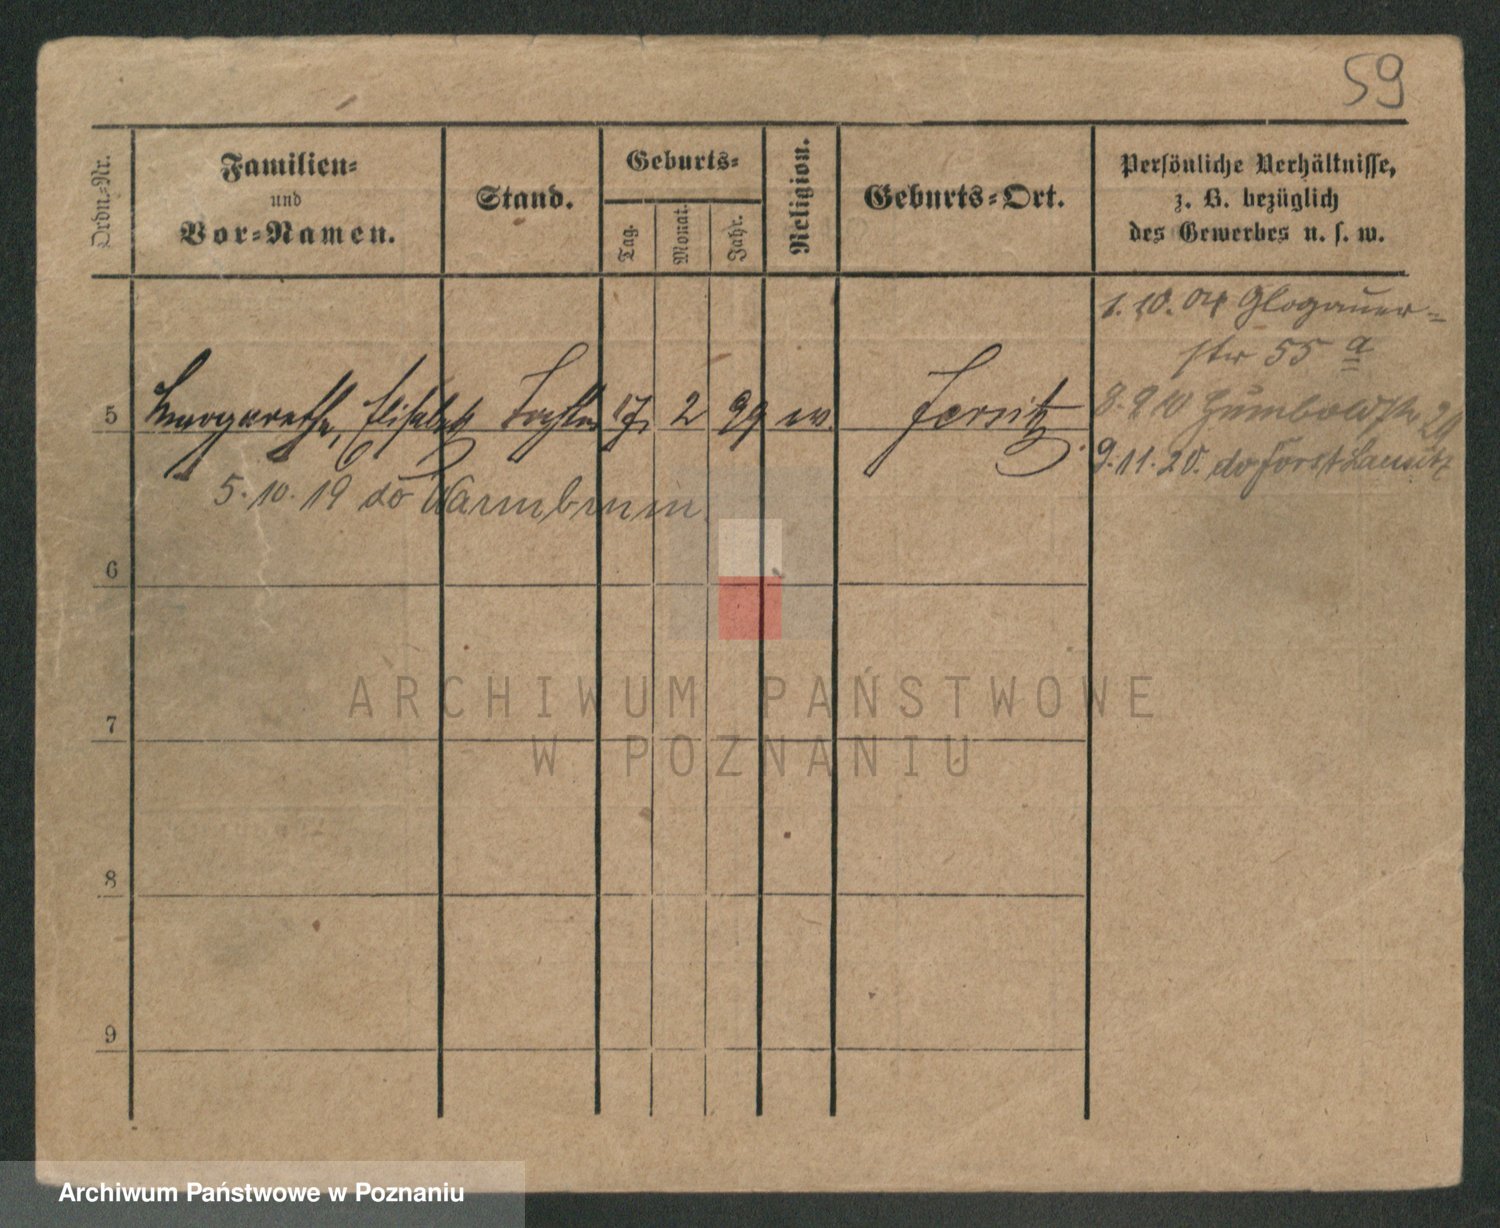 59
Ordn.-Nr.
Familien-
und
Vor-Namen.
Stand.
Geburts-
Tag.
Monat.
Jahr.
Religion.
Geburts-Ort.
Persönliche Verhältnisse,
z. B. bezüglich
des Gewerbes u. s. w.
1. 10. 04 Glogauer-
str 55 a
5 Margarethe, Elisabeth Tochter 17. 2 99 ev. Jersitz
8. 9 10 Humboldstr 29
9. 11. 20. do Forst Lausitz
5. 10. 19 do Warmbrunn
6
7
8
9
ARCHIWUM PAŃSTWOWE
W POZNANIU
Archiwum Państwowe w Poznaniu